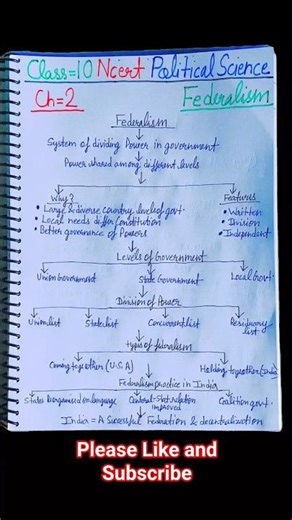 Class=10 Ncert Political Science
Ch=2 Federalism
Federalism
System of dividing Power in government
Power shared among different levels
Why? Features
• Large & diverse country level of govt. • Written
• Local needs differ constitution • Division
• Better governance of Powers • Independent
Levels of Government
Union Government State Government Local Govt
Division of Power
Union list State list Concurrent list Residuary list
types of fedralism
Coming together (U.S.A) Holding together (India)
Fedralism practice in India
States reorganised on language Central-State relation improved Coalition govt.
India = A Sucessful Fedration & decentralization
Please Like and
Subscribe